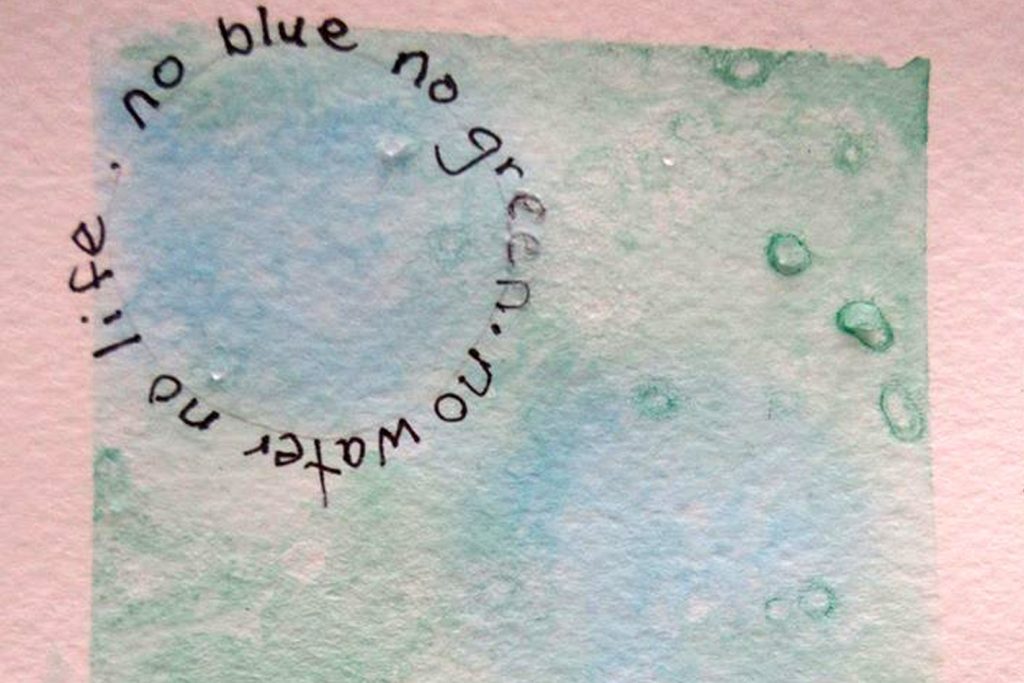 no blue no green. no water no life.